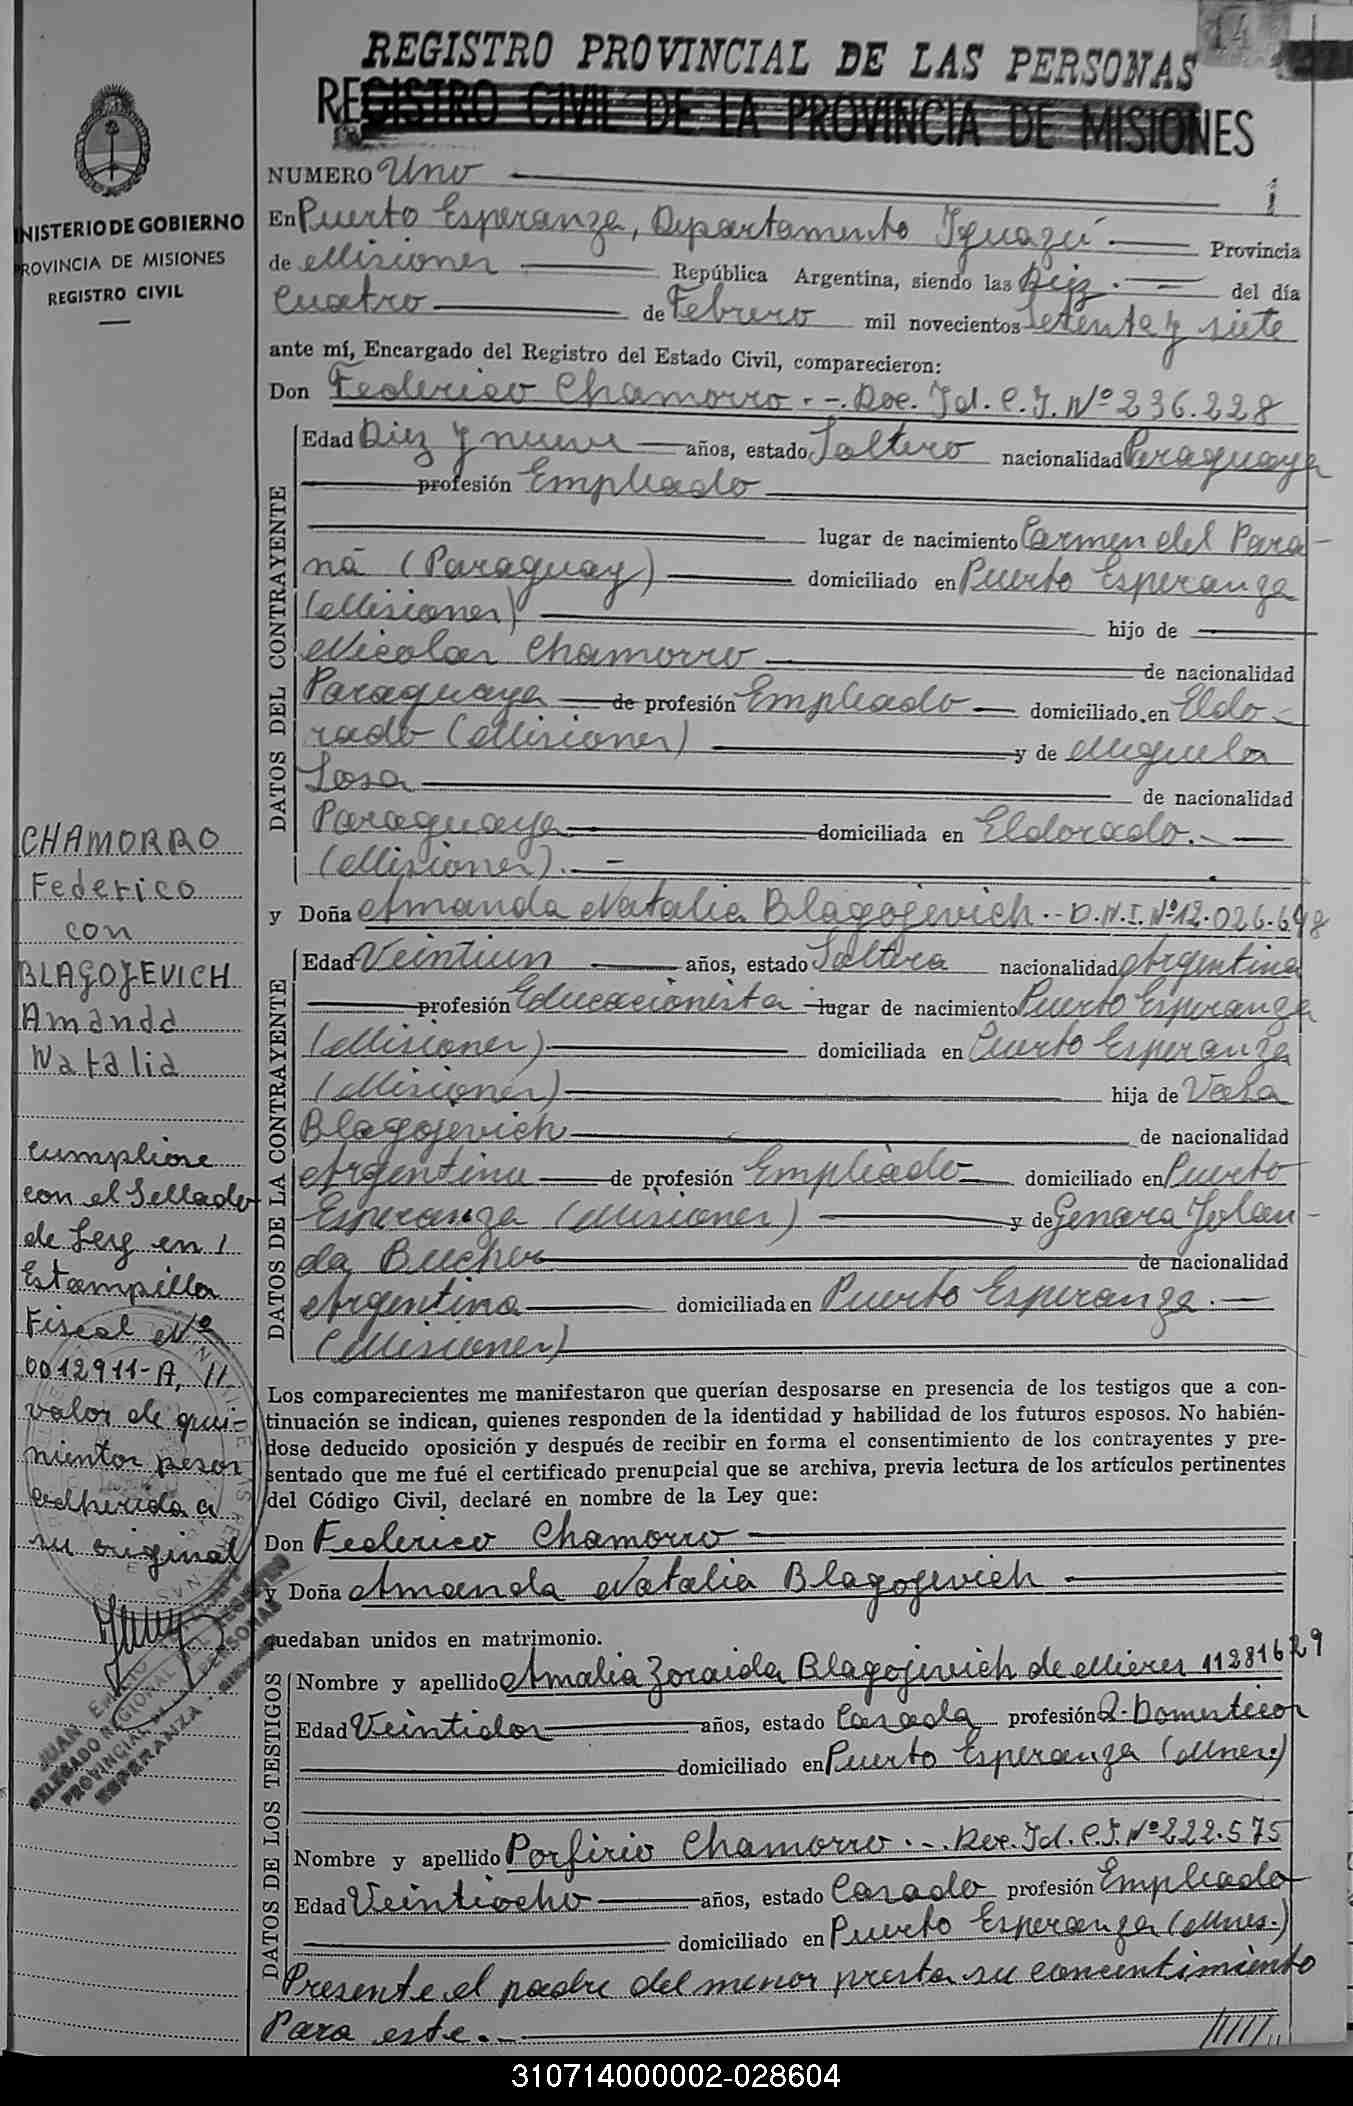 14
REGISTRO PROVINCIAL DE LAS PERSONAS
REGISTRO CIVIL DE LA PROVINCIA DE MISIONES
NUMERO Uno
1
En Puerto Esperanza, Departamento Iguazú Provincia
de Misiones República Argentina, siendo las Diez.- del día
Cuatro de Febrero mil novecientos setenta y siete
ante mí, Encargado del Registro del Estado Civil, comparecieron:
Don Federico Chamorro.-. Doc. Id. C.I. Nº 236.228
DATOS DEL CONTRAYENTE
Edad Diez y nueve años, estado Soltero nacionalidad Paraguaya
profesión Empleado
lugar de nacimiento Carmen del Para-
ná (Paraguay) domiciliado en Puerto Esperanza
(Misiones) hijo de
Nicolas Chamorro de nacionalidad
Paraguaya de profesión Empleado domiciliado en Eldo-
rado (Misiones) y de Miguela
Sosa de nacionalidad
Paraguaya domiciliada en Eldorado.-
(Misiones).-
y Doña Amanda Natalia Blagojevich.- D.N.I. Nº 12.026.698
DATOS DE LA CONTRAYENTE
Edad Veintiun años, estado Soltera nacionalidad Argentina
profesión Educacionista lugar de nacimiento Puerto Esperanza
(Misiones) domiciliada en Puerto Esperanza
(Misiones) hija de Vasa
Blagojevich de nacionalidad
Argentina de profesión Empleado domiciliado en Puerto
Esperanza (Misiones) y de Genara Jolan-
da Bucher de nacionalidad
Argentina domiciliada en Puerto Esperanza.-
(Misiones)
Los comparecientes me manifestaron que querían desposarse en presencia de los testigos que a con-
tinuación se indican, quienes responden de la identidad y habilidad de los futuros esposos. No habién-
dose deducido oposición y después de recibir en forma el consentimiento de los contrayentes y pre-
sentado que me fué el certificado prenupcial que se archiva, previa lectura de los artículos pertinentes
del Código Civil, declaré en nombre de la Ley que:
Don Federico Chamorro
y Doña Amanda Natalia Blagojevich
quedaban unidos en matrimonio.
DATOS DE LOS TESTIGOS
Nombre y apellido Amalia Zoraida Blagojevich de Mieres 11281629
Edad Veintidos años, estado Casada profesión Q. Domesticos
domiciliado en Puerto Esperanza (Mnes.)
Nombre y apellido Porfirio Chamorro.-. Doc. Id. C.I. Nº 222.575
Edad Veintiocho años, estado Casado profesión Empleado
domiciliado en Puerto Esperanza (Mnes.)
Presente el padre del menor presta su concentimiento
Para este.-
MINISTERIO DE GOBIERNO
PROVINCIA DE MISIONES
REGISTRO CIVIL
CHAMORRO
Federico
con
BLAGOJEVICH
Amanda
Natalia
Cumplióse
con el Sellado
de Ley en 1
Estampilla
Fiscal Nº
0012911-A, 11
valor de qui-
nientos pesos
adherida a
su original
JUAN EMILIO
DELEGADO REGIONAL DEL REGISTRO
PROVINCIAL DE LAS PERSONAS
ESPERANZA - MISIONES
310714000002-028604